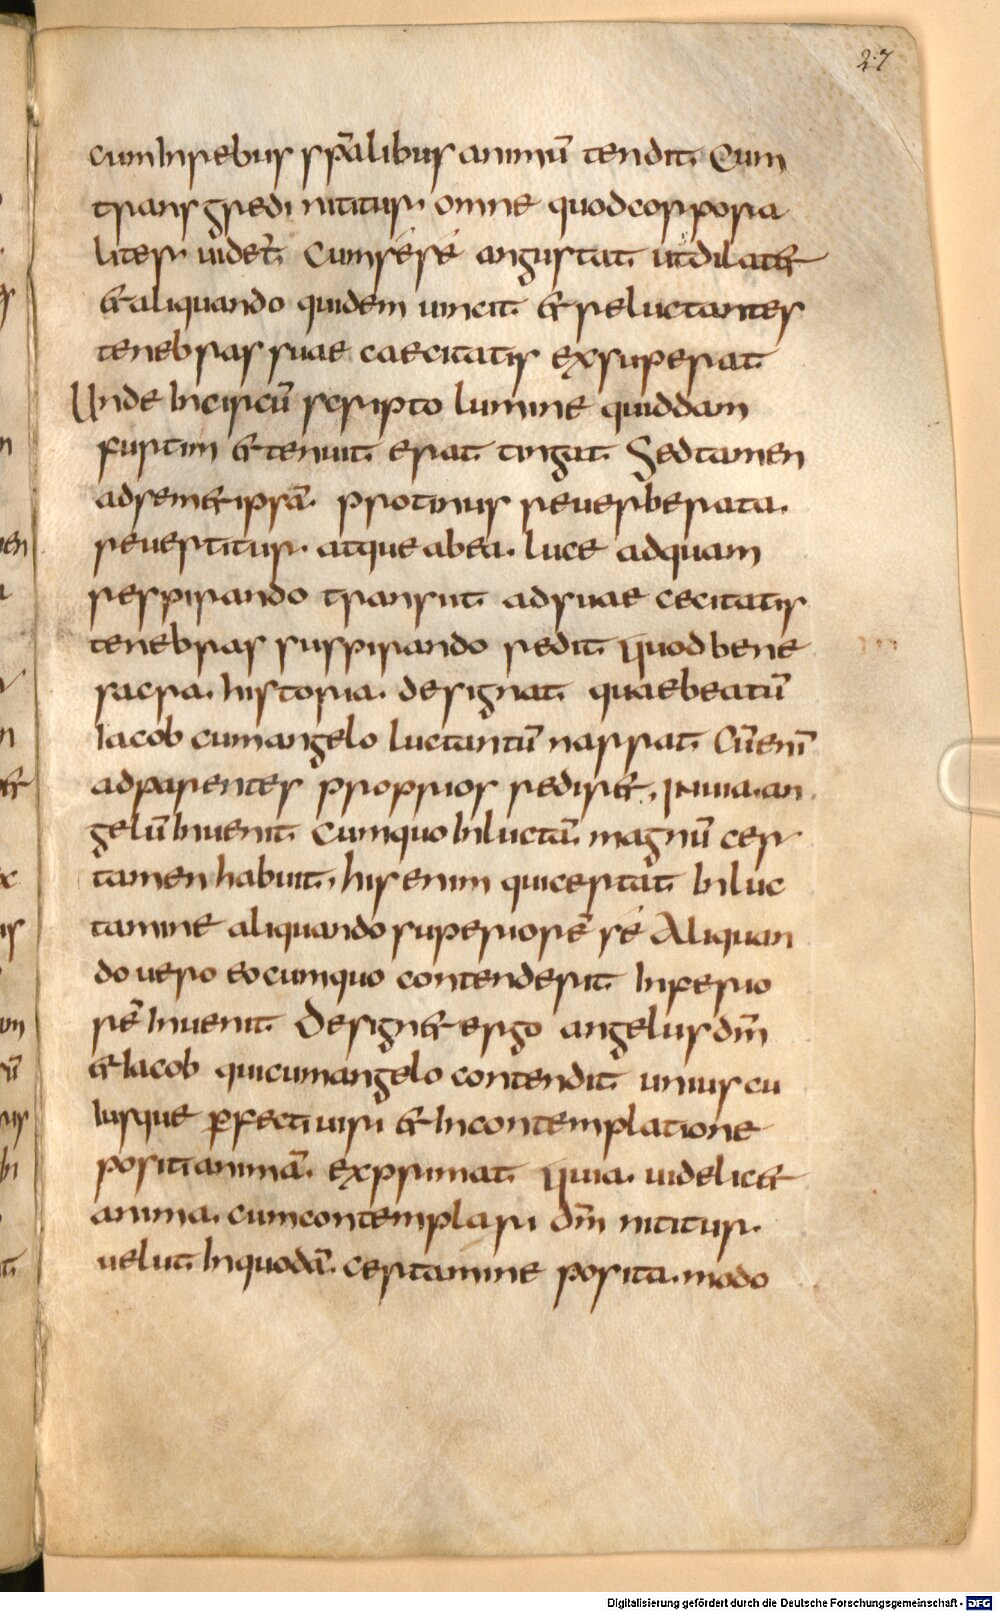 27
cum in rebus sp̄alibus animū tendit. Cum
transgredi nititur. omne quod corpora
liter uidet̄. Cum sese angustat. ut dilat&
& aliquando quidem uincit. & reluctantes
tenebras suae caecitatis exsuperat.
Unde incircū scripto lumine quiddam
furtim & tenuit. erat tingat. Sed tamen
ad sem& ipsā. protinus reuerberata.
reuertitur. atque ab ea. luce ad quam
respirando transiit. ad suae cecitatis
tenebras suspirando redit. Quod bene
sacra. historia. designat. quae beatū
Iacob cum angelo luctantū narrat. Cū enī
ad parentes proprios redir&, in uia. an
gelū inuenit. Cum quo in luctā. magnū cer
tamen habuit, his enim qui certat. In luc
tamine aliquando superiorē sé Aliquan
do uero eo cum quo contenderit. Inferio
rē inuenit. Design& ergo angelus dn̄m
& Iacob qui cum angelo contendit. unius cu
iusque perfecti uiri & in contemplatione
positi animā. exprimat. Quia. uidelic&
anima. cum contemplari dn̄m nititur.
uelut. In quodā. certamine posita. modo
Digitalisierung gefördert durch die Deutsche Forschungsgemeinschaft - DFG